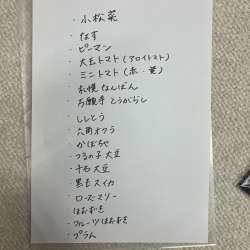 ・小松菜
・なす
・ピーマン
・大玉トマト(アロイトマト)
・ミニトマト(赤・黄)
・札幌なんばん
・お願手とうがらし
・ししとう
・六角オクラ
・かぼちゃ
・つるの子大豆
・十石大豆
・黒玉スイカ
・ローズマリー
ほおずき
・フルーツほおずき
・プラム